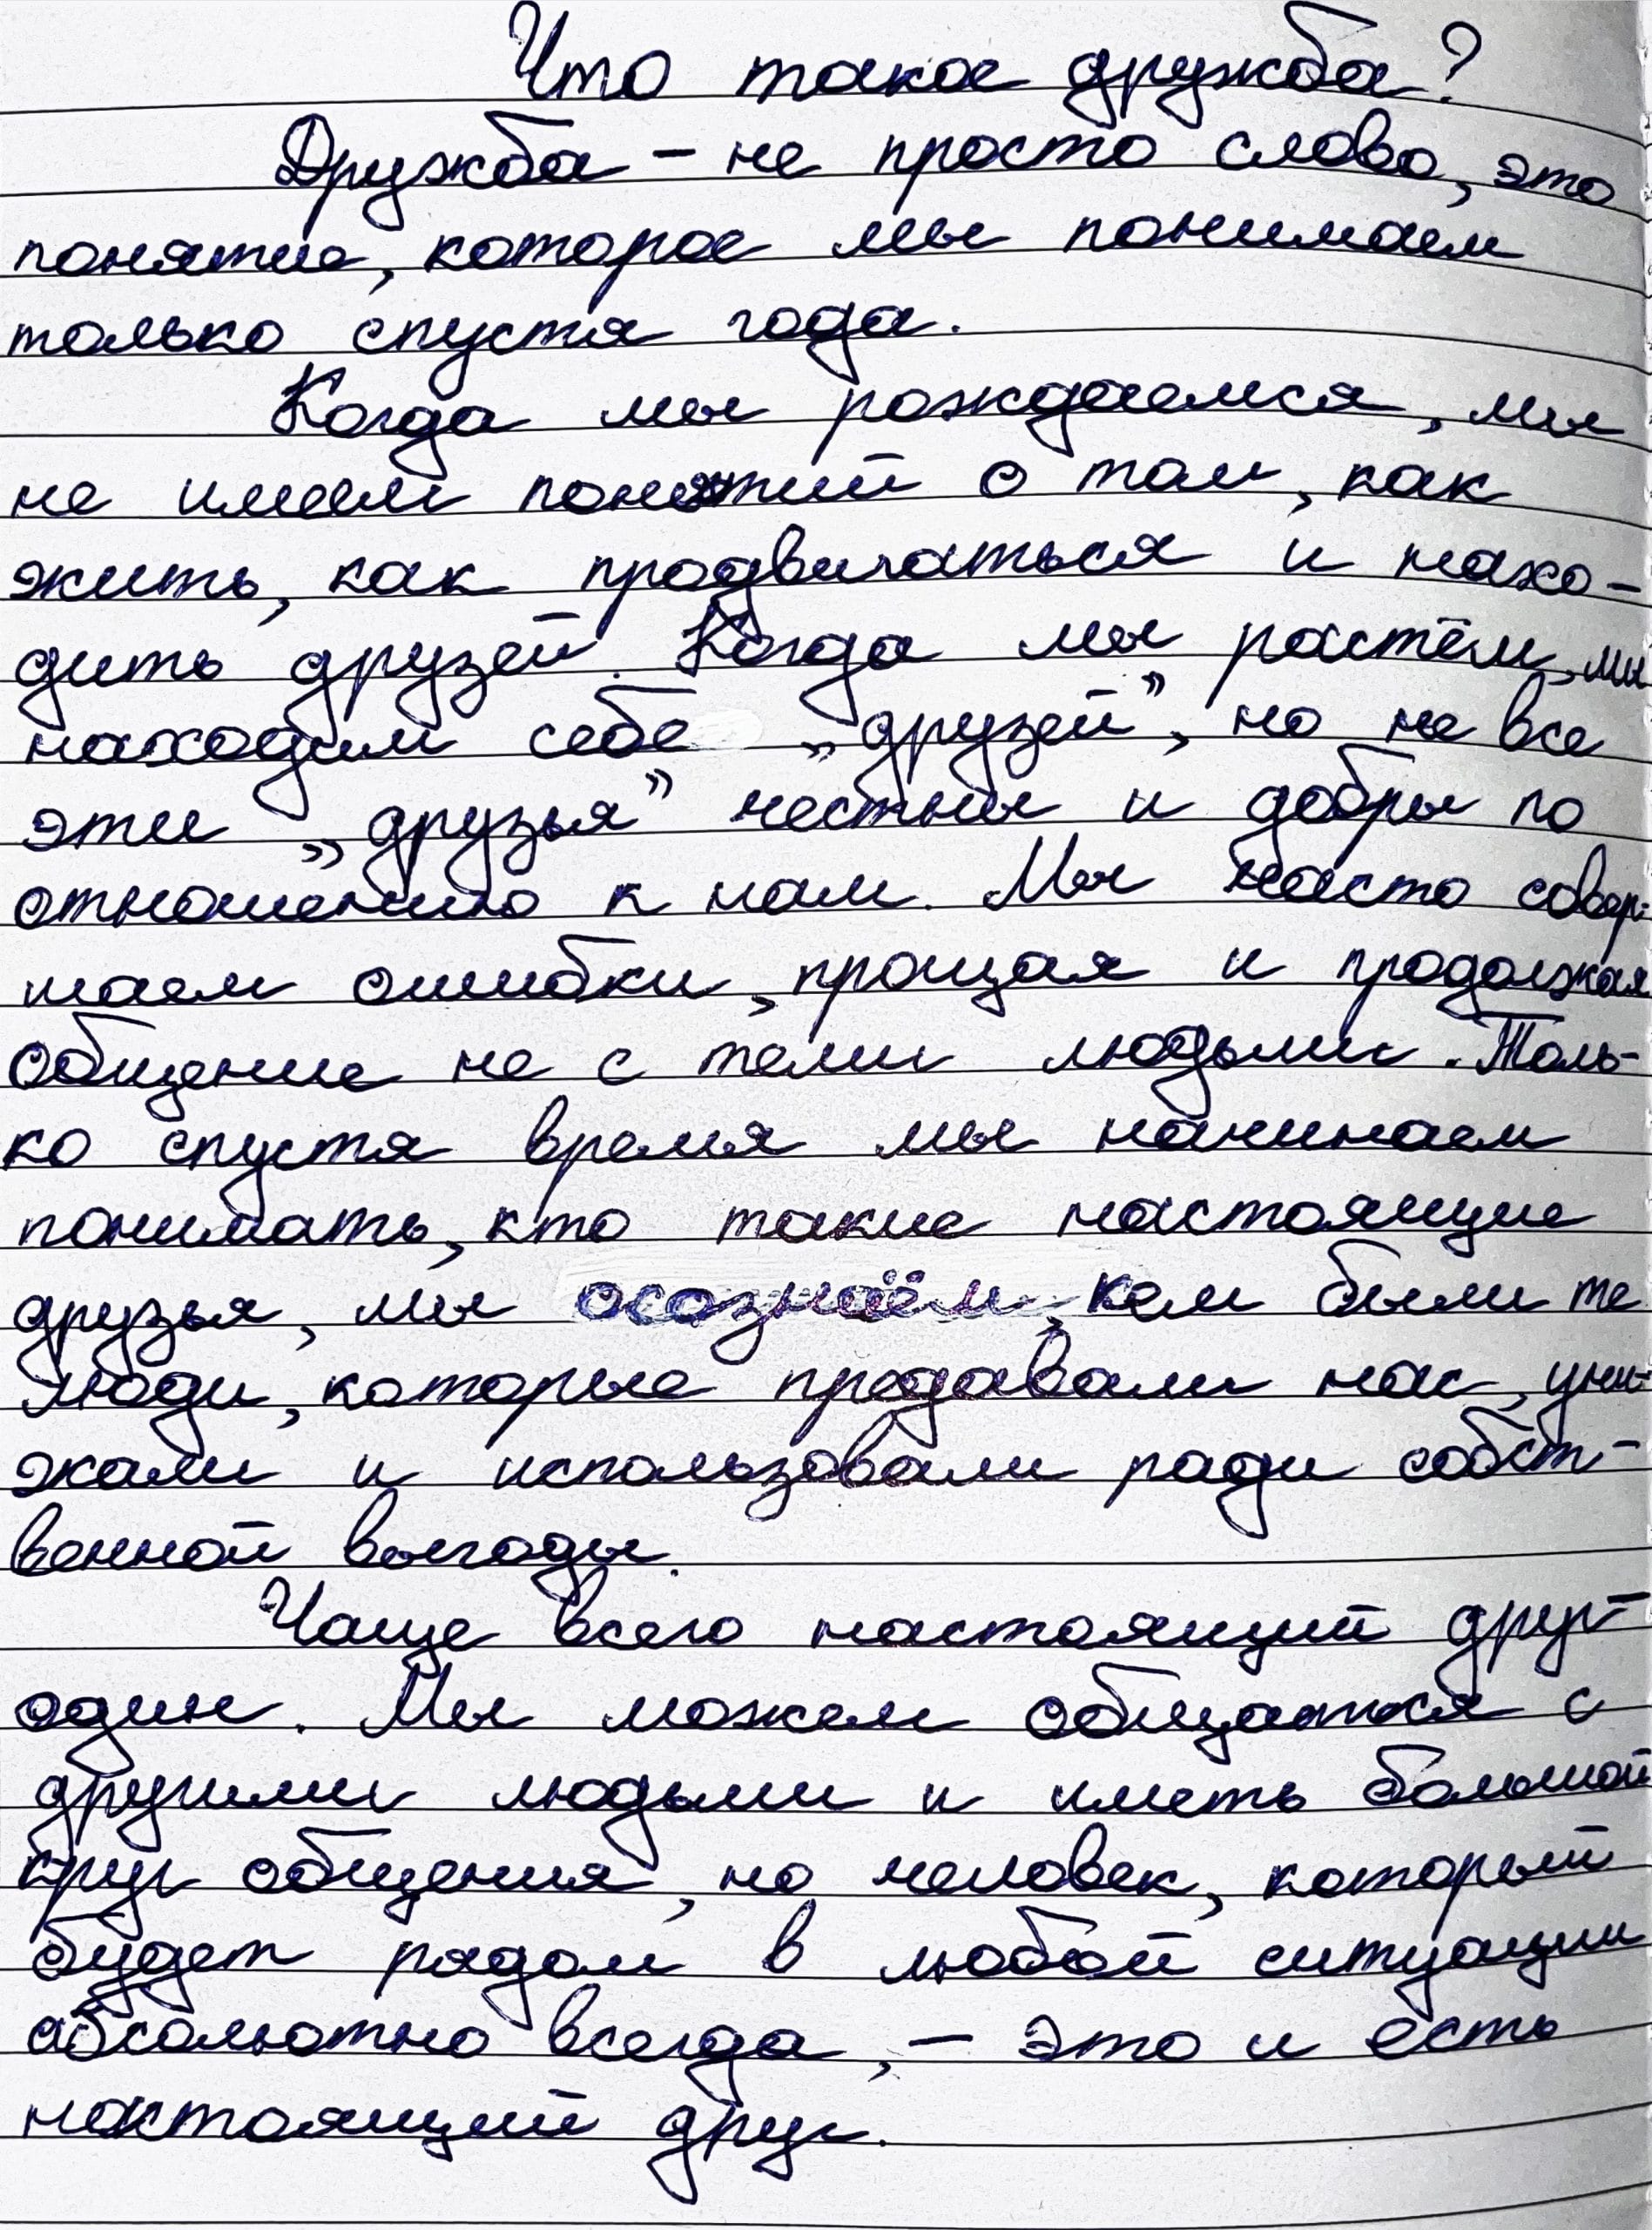 Что такое дружба?
Дружба - не просто слово, это
понятие, которое мы понимаем
только спустя года.
Когда мы рождаемся, мы
не имеем понятий о том, как
жить, как продвигаться и нахо-
дить друзей. Когда мы растём, мы
находим себе „друзей”, но не все
эти „друзья” честны и добры по
отношению к нам. Мы часто совер-
шаем ошибки, прощая и продолжая
общение не с теми людьми. Толь-
ко спустя время мы начинаем
понимать, кто такие настоящие
друзья, мы осознаём, кем были те
люди, которые предавали нас, уни-
жали и использовали ради собст-
венной выгоды.
Чаще всего настоящий друг -
один. Мы можем общаться с
другими людьми и иметь большой
круг общения, но человек, который
будет рядом в любой ситуации
абсолютно всегда, - это и есть
настоящий друг.